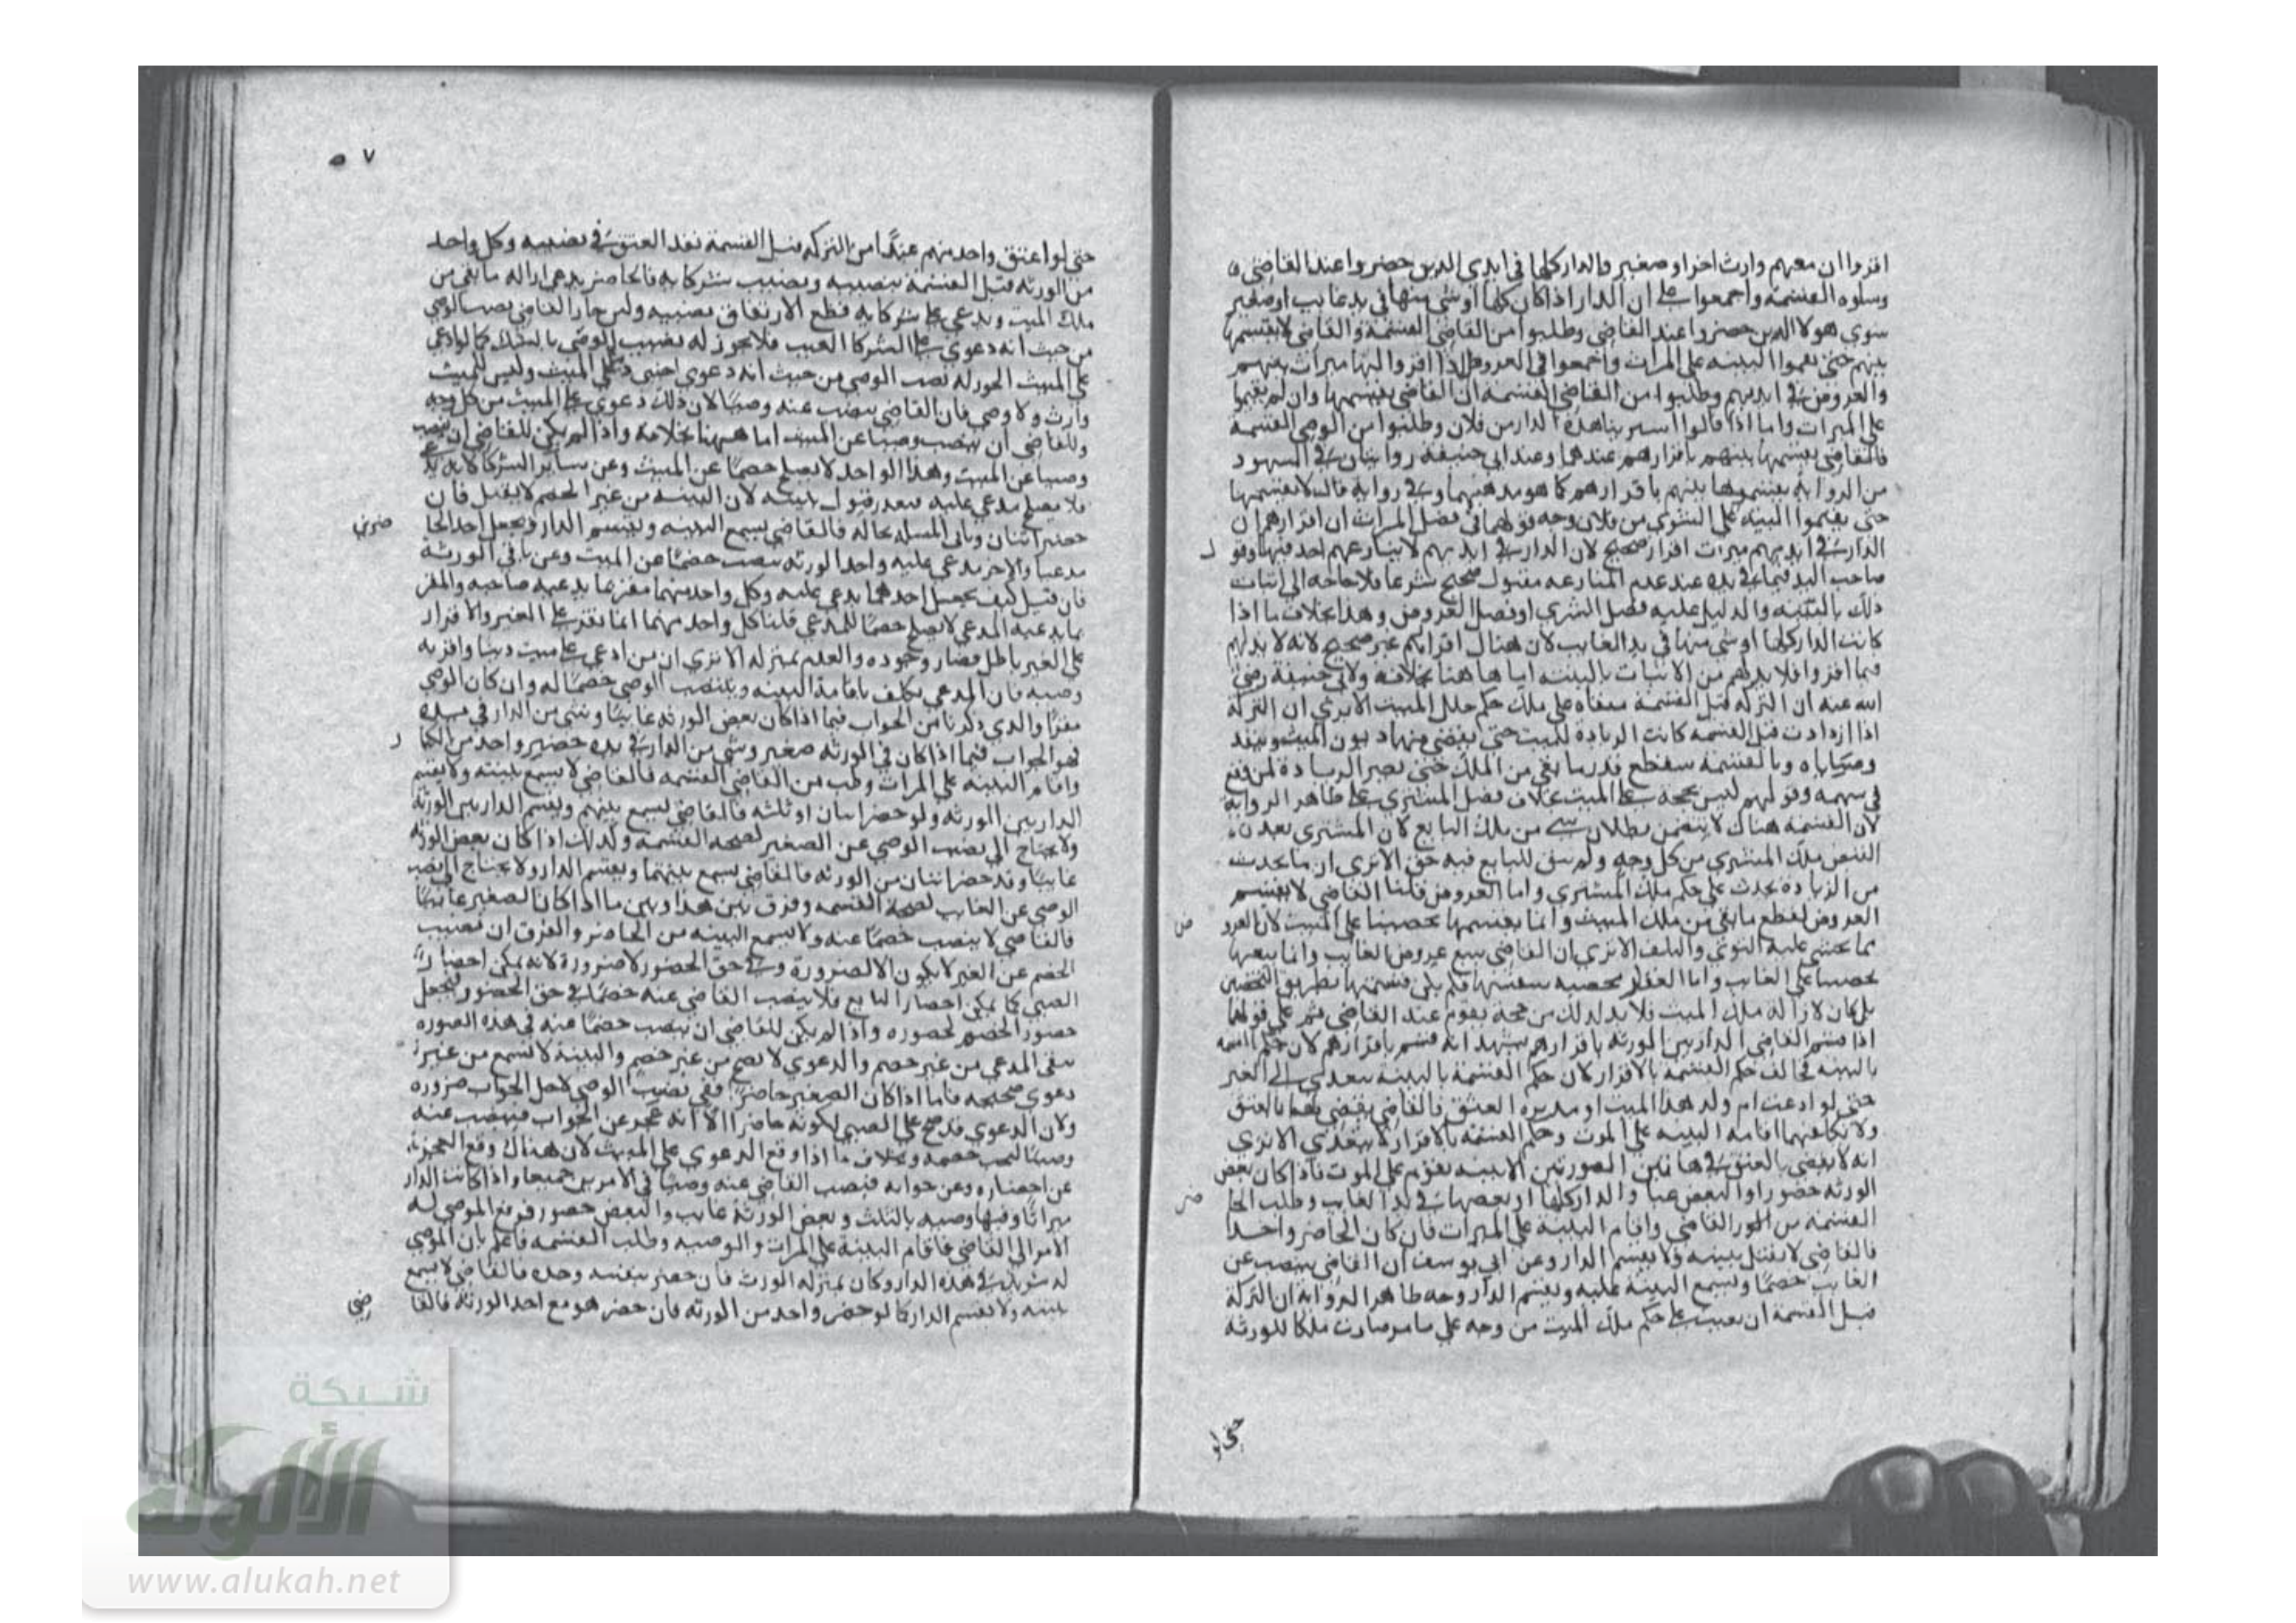 اقروا ان معهم وارث اخر او صغير والدار كلها في ايدي الذين حضروا عند القاضي
وسلوه القسمة واجمعوا على ان الدار اذا كان كلها او شي منها في يد غايب او صغير
سوي هولا الذين حضروا عند القاضي وطلبوا من القاضي القسمة والقاضي لا يقسمها
بينهم حتى يقيموا البينه على الميراث واجمعوا في العروض اذا اقروا انها ميراث بينهم
والعروض في ايديهم وطلبوا من القاضي القسمة ان القاضي يقسمها وان لم يقيموا
على الميراث واما اذا قالوا اشترينا هذه الدار من فلان وطلبوا من القسمة
فالقاضي يقسمها بينهم باقرارهم عندهما وعند ابي حنيفه روايتان في المشهور
من الروايه يقسموها بينهم باقرارهم كما هو مذهبهما وفي روايه قال لا يقسمها
حتى يقيموا البينه على الشري من فلان وجه قولهما في فصل الميراث ان اقرارهم ان
الدار في ايديهم ميراث اقرار صحيح لان الدار في ايديهم لا ينازعهم احد فيها وقو ل
صاحب اليد فيما في يده عند عدم المنازعه مقبول صحيح شرعا فلا حاجه الى اثبات
ذلك بالبينه والدليل عليه فصل الشري او فصل العروض وهذا بخلاف ما اذا
كانت الدار كلها او شي منها في يد الغايب لان هناك اقرارهم غير صحيح لانه لا يد لهم
فيما اقروا فلا بد لهم من الاثبات بالبينه اما ها هنا بخلافه ولابي حنيفة رضي
الله عنه ان التركه قبل القسمة مبقاه على ملك حكم ملك الميت الا يري ان التركة
اذا ازدادت قبل القسمه كانت الزيادة للميت حتى يقضي منها ديون الميت وينفذ
وصاياه وبالقسمة ينقطع قدر ما بقي من الملك حتى يصير الزيادة لمن وقع
في سهمه وقولهم ليس بحجه على الميت بخلاف فصل المشتري على ظاهر الروايه
لان القسمة هناك لا يتضمن بطلان شي من ملك البايع لان المشتري بعد
القبض ملك المشتري من كل وجه ولم يبق للبايع فيه حق الا يري ان ما يحدث
من الزيادة يحدث على حكم ملك المشتري واما العروض قلنا القاضي لا يقسم
العروض لقطع ما بقي من ملك الميت وانما يقسمها تحصينا على الميت لان العرو ض
مما يخشى عليه التوي والتلف الا تري ان القاضي يبيع عروض الغايب وانما يبيعها
تحصينا على الغايب واما العقار محصنه بنفسها فلم يكن قسمتها بطريق التحصين
بل كان لازالة ملك الميت فلا بد لذلك من حجة يقوم عند القاضي ثم على قولهما
اذا قسم القاضي الدار بين الورثه باقرارهم يشهد انه قسم باقرارهم لان حكم القسمه
بالبينه يخالف حكم القسمه بالاقرار لان حكم القسمة بالبينه يتعدى الى الغير
حتى لو ادعت ام ولد هذا الميت او مدبره العتق فالقاضي يقضي لهما بالعتق
ولا يكلفهما اقامه البينه على الموت وحكم القسمة بالاقرار لا يتعدى الا تري
انه لا يقضي بالعتق في هاتين الصورتين الا ببينه يقوم على الموت فاذا كان بعض
الورثه حضورا والبعض غيبا والدار كلها او بعضها في يد الغايب وطلب الحا ضر
القسمة من القاضي واقام البينة على الميراث فان كان الحاضر واحدا
فالقاضي لا يقبل بينه ولا يقسم الدار وعن ابي يوسف ان القاضي ينصب عن
الغايب خصما ويسمع البينة عليه ويقسم الدار وجه ظاهر الروايه ان التركة
قبل القسمه ان بقيت على حكم ملك الميت من وجه على ما مر صارت ملكا للورثه
حتى لو
٧
حتى لو اعتق واحد منهم عبدا من التركه قبل القسمة نفذ العتق في نصيبه وكل واحد
من الورثه قبل القسمة بنصيبه ونصيب شركايه فالحاضر يدعي ازالة ما بقي من
ملك الميت ويدعي على شركايه قطع الارتفاق بنصيبه وليس جاز للقاضي نصب الوصي
من حيث انه دعوي على الشركا الغيب فلا يجوز له نصب الوصي بالشك كما لو ادعي
على الميت يجوز له نصب الوصي من حيث انه دعوي اجنبي على الميت وليس للميت
وارث ولا وصي فان القاضي ينصب عنه وصيا لان ذلك دعوي على الميت من كل وجه
وللقاضي ان ينصب وصيا عن الميت اما ههنا بخلافه واذا لم يكن للقاضي ان ينصب
وصيا عن الميت وهذا الواحد لا يصلح خصما عن الميت وعن ساير الشركا لانه
فلا يصلح مدعي عليه تعذر قبول بينته لان البينه من غير الخصم لا يقبل فان
حضر اثنان وباقي المسله بحاله فالقاضي يسمع البينه ويقسم الدار ويجعل احد الحا ضرين
مدعيا والاخر مدعي عليه واحد الورثه ينصب خصما عن الميت وعن باقي الورثة
فان قيل كيف يجعل احدهما مدعي عليه وكل واحد منهما مقر بما يدعيه صاحبه والمقر
بما يدعيه المدعي لا يصلح خصما للمدعي قلنا كل واحد منهما انما يقر على الغير والاقرار
على الغير باطل فصار وجوده والعدم بمنزله الا تري ان من ادعي على ميت دينا واقر به
وصيه فان المدعي يكلف باقامة البينه وينتصب الوصي خصما له وان كان الوصي
مقرا والذي ذكرنا من الجواب فيما اذا كان بعض الورثه غايبا وشي من الدار في يده
فهو الجواب فيما اذا كان في الورثه صغير وشي من الدار في يده حضر واحد من الكبا ر
واقام البينه على الميراث وطلب من القاضي القسمه فالقاضي لا يسمع بينته ولا يقسم
الدار بين الورثه ولو حضر اثنان او ثلثه فالقاضي يسمع بينهم ويقسم الدار بين الورثة
ولا يحتاج الى نصب الوصي عن الصغير لصحه القسمه وكذلك اذا كان بعض الورثه
غايبا وقد حضر اثنان من الورثه فالقاضي يسمع بينتهما ويقسم الدار ولا يحتاج الى نصب
الوصي عن الغايب لصحة القسمه وفرق بين هذا وبين ما اذا كان الصغير غايبا
فالقاضي لا ينصب خصما عنه ولا يسمع البينه من الحاضر والفرق ان نصيب
الخصم عن الغير لا يكون الا لضرورة وفي حق الحضور لا ضرورة لانه يمكن احضار
الصبي كما يمكن احضار البايع فلا ينصب القاضي عنه خصما في حق الحضور ليجعل
حضور الخصم كحضوره واذا لم يكن للقاضي ان ينصب خصما عنه في هذه الصوره
يبقى المدعي من غير خصم والدعوي لا تصح من غير خصم والبينة لا تسمع من غير
دعوي صحيحه فاما اذا كان الصغير حاضرا ففي نصب الوصي لاجل الجواب ضروره
ولان الدعوي قد صح على الصبي لكونه حاضرا الا انه عجز عن الجواب فينصب عنه
وصيا ليجيب خصمه وبخلاف ما اذا وقع الدعوي على الميت لان هناك وقع العجز
عن احضاره وعن جوابه فينصب القاضي عنه وصيا في الامرين جميعا واذا كانت الدار
ميراثا وفيها وصيه بالثلث وبعض الورثة غايب والبعض حضور فرفع الموصي له
الامر الى القاضي فاقام البينة على الميراث والوصيه وطلب القسمه فاعلم بان الموصي
له شريك في هذه الدار وكان بمنزله الورث فان حضر بنفسه وحده فالقاضي لا يسمع
بينته ولا يقسم الدار كما لو حضر واحد من الورثه فان حضر هو مع احد الورثه فالقا ضي
شبكة
الألوكة
www.alukah.net